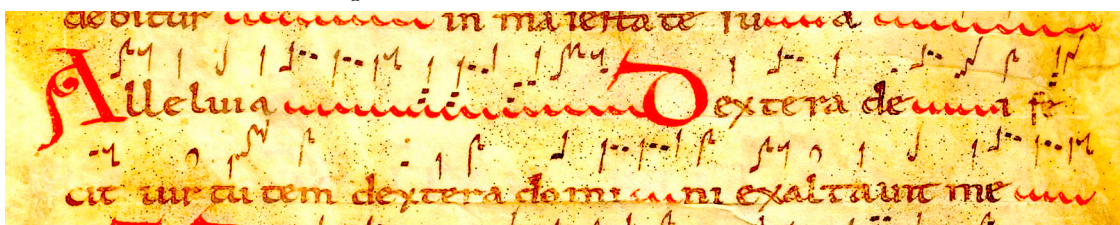 debitur in maiestate su a
Alleluia Dextera dei fe
cit uirtutem dextera domini exaltauit me